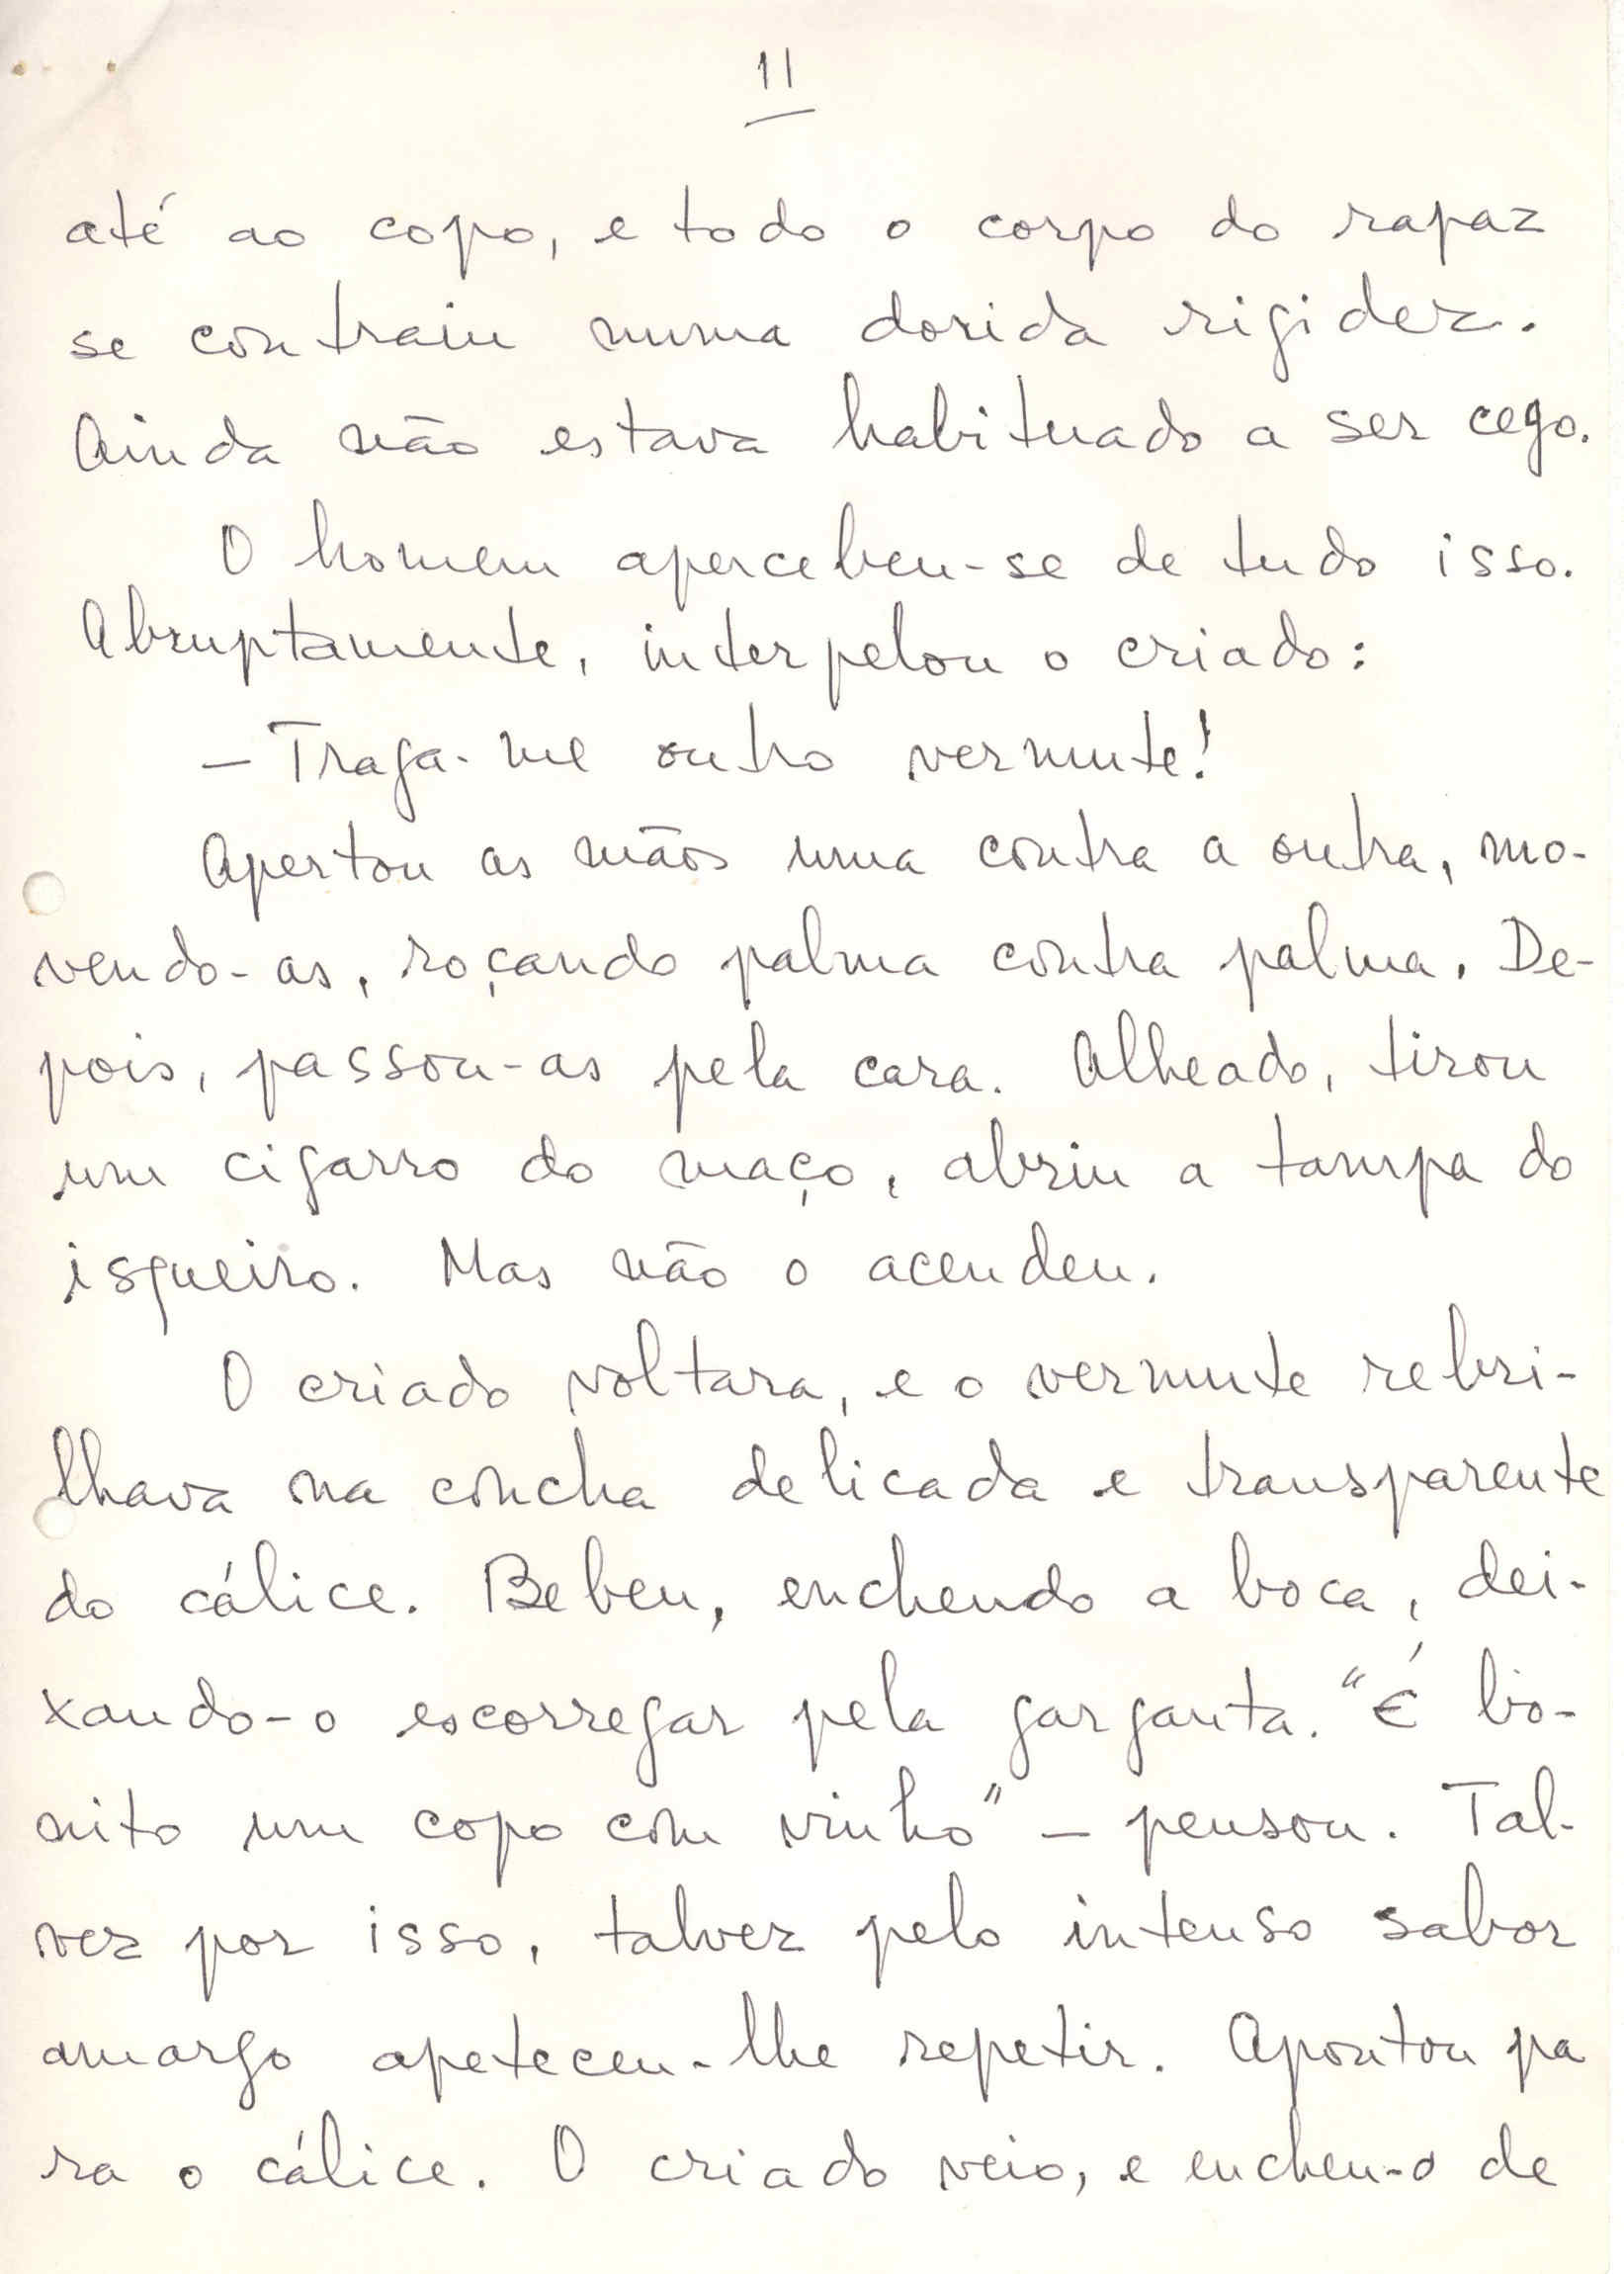 11
até ao copo, e todo o corpo do rapaz
se contraiu numa dorida rigidez.
Ainda não estava habituado a ser cego.
O homem apercebeu-se de tudo isso.
Abruptamente, interpelou o criado:
— Traga-me outro vermute!
Apertou as mãos uma contra a outra, mo-
vendo-as, roçando palma contra palma. De-
pois, passou-as pela cara. Alheado, tirou
um cigarro do maço, abriu a tampa do
isqueiro. Mas não o acendeu.
O criado voltara, e o vermute rebri-
lhava na concha delicada e transparente
do cálice. Bebeu, enchendo a boca, dei-
xando-o escorregar pela garganta. "É bo-
nito um copo com vinho" — pensou. Tal-
vez por isso, talvez pelo intenso sabor
amargo apeteceu-lhe repetir. Apontou pa
ra o cálice. O criado veio, e encheu-o de